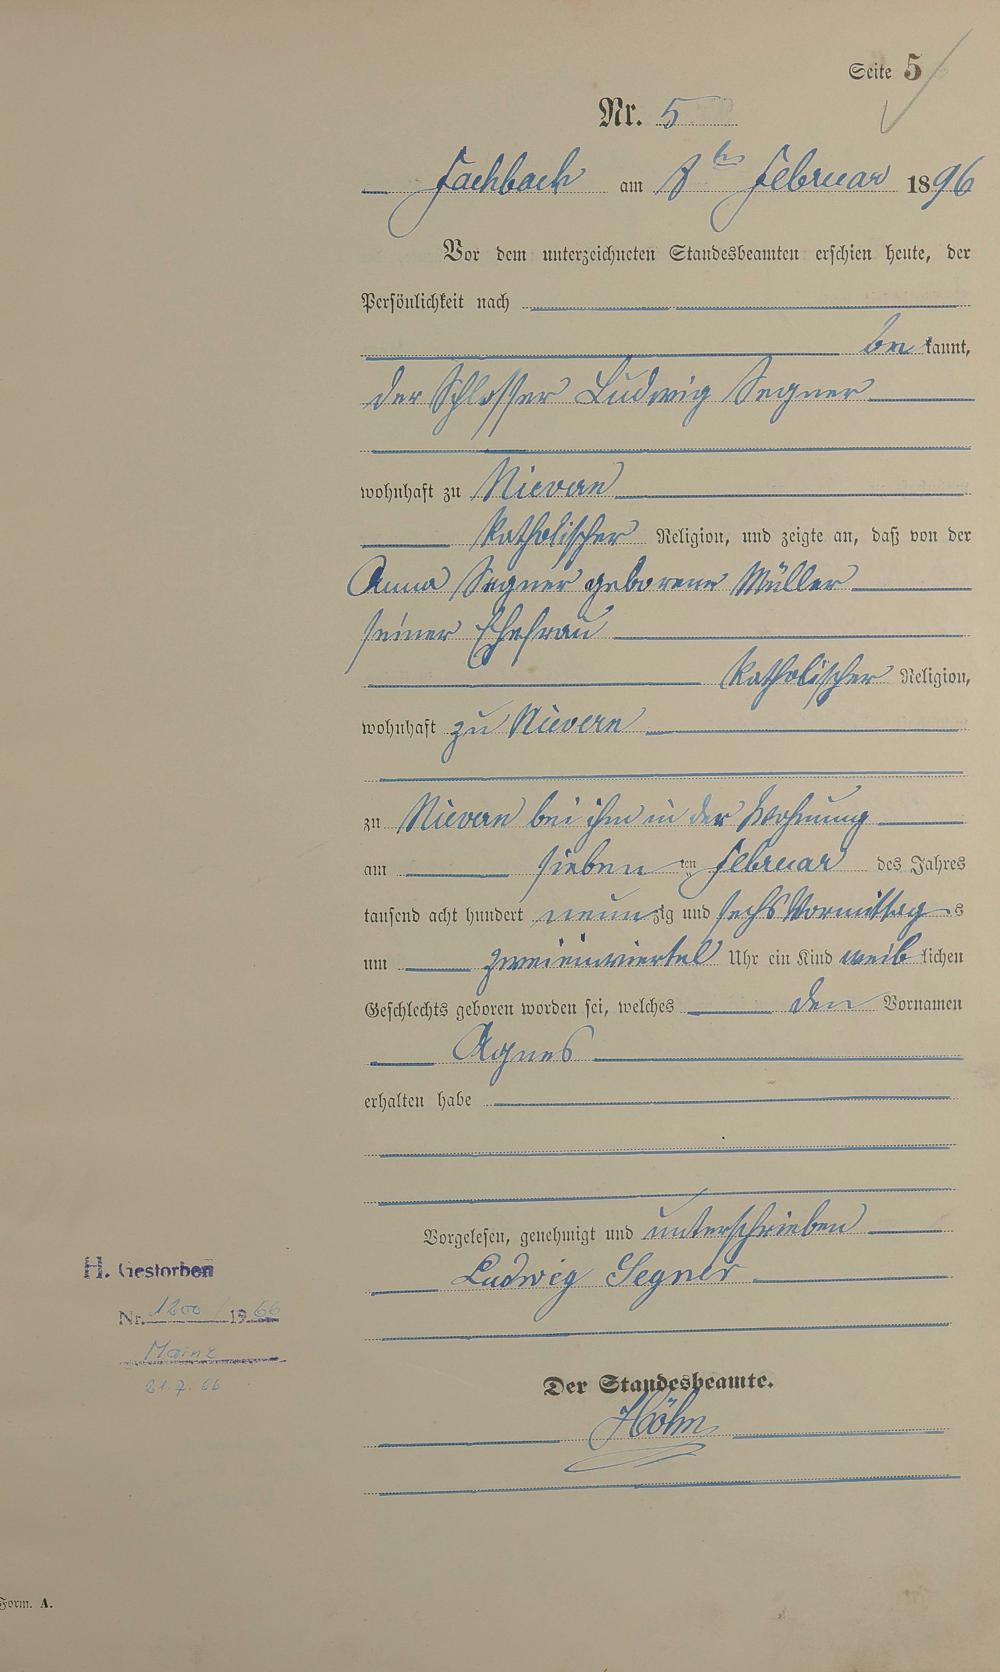 Seite 5
Nr. 5
Fachbach am 8ten Februar 1896
Vor dem unterzeichneten Standesbeamten erschien heute, der
Persönlichkeit nach
be kannt,
der Schlosser Ludwig Segner
wohnhaft zu Nievern
katholischer Religion, und zeigte an, daß von der
Anna Segner geborene Müller
seiner Ehefrau
katholischer Religion,
wohnhaft zu Nievern
zu Nievern bei ihm in der Wohnung
am sieben ten Februar des Jahres
tausend acht hundert neunzig und sechs Vormittags
um zweieinviertel Uhr ein Kind weiblichen
Geschlechts geboren worden sei, welches den Vornamen
Agnes
erhalten habe
Vorgelesen, genehmigt und unterschrieben
Ludwig Segner
Der Standesbeamte.
Höhn
H. Gestorben
Nr. 1200/1966
Mainz
21.7.66
Form. A.